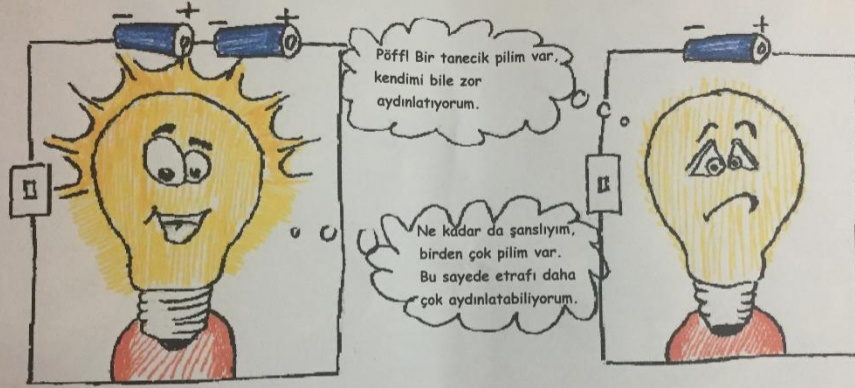 - +
- +
- +
Pöff! Bir tanecik pilim var,
kendimi bile zor
aydınlatıyorum.
Ne kadar da şanslıyım,
birden çok pilim var.
Bu sayede etrafı daha
çok aydınlatabiliyorum.